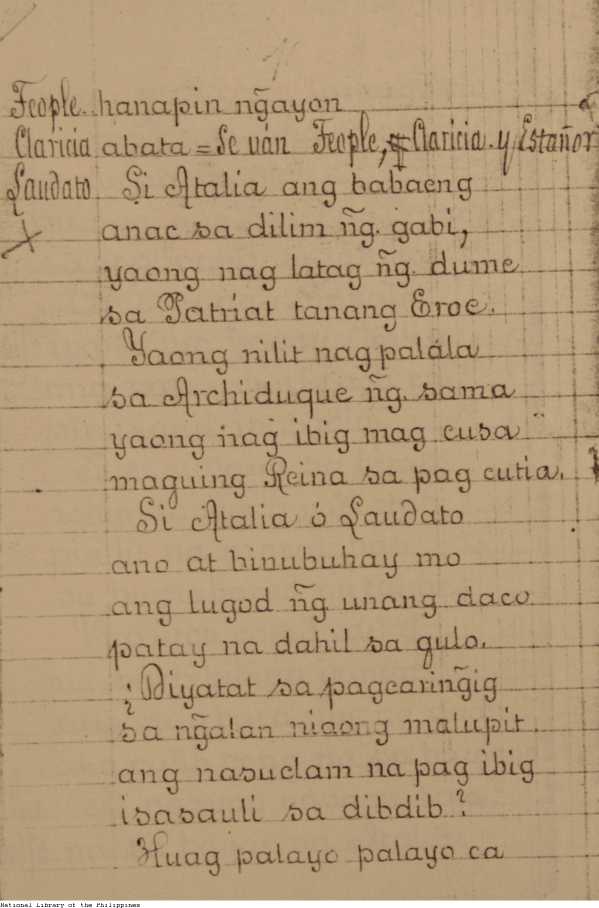 Feople. hanapin ng̃ayon
Claricia abata = Se ván Feople, Claricia y Estañor
Laudato. Si Atalia ang babaeng
anac sa dilim ñg. gabi,
yaong nag latag ñg. dume
sa Patriat tanang Eroe.
Yaong nilit nag palála
sa Archiduque ñg. sama
yaong nag ibig mag cusa
maguing Reina sa pag cutia.
Si Atalia ó Laudato
ano at binubuhay mo
ang lugod ñg. unang daco
patay na dahil sa gulo.
¿Diyatat sa pagcaring̃ig
sa ng̃alan niaong malupit.
ang nasuclam na pag ibig
isasauli sa dibdib?
Huag palayo palayo ca
National Library of the Philippines